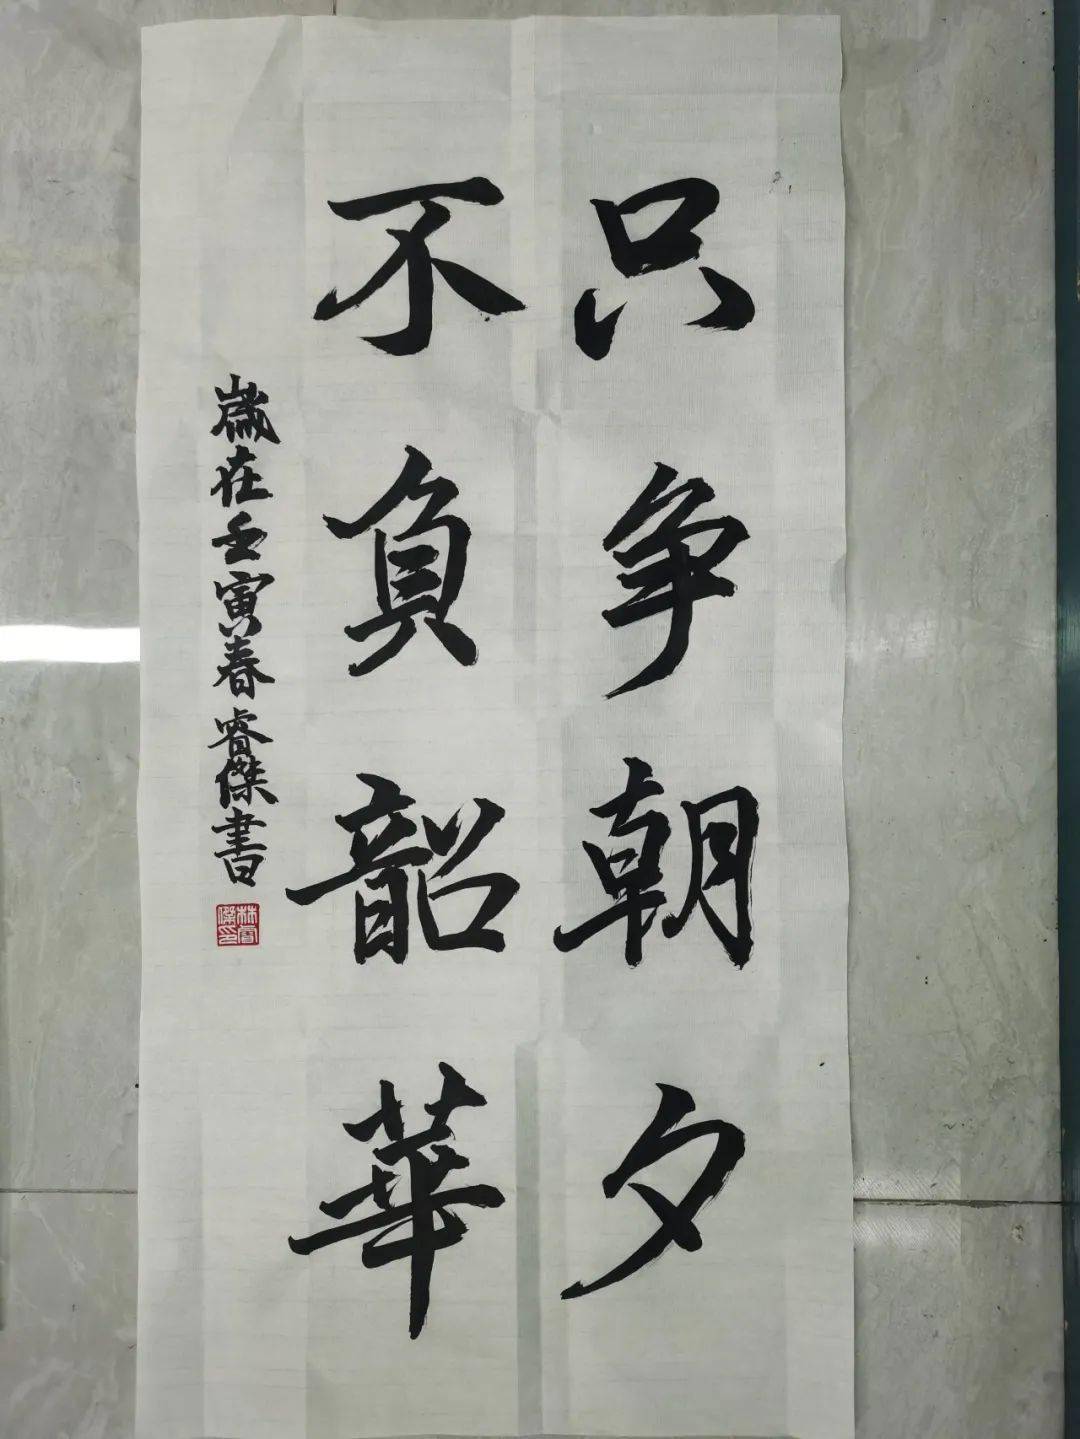 只争朝夕
不負韶華
歲在壬寅春睿傑書
林睿傑印